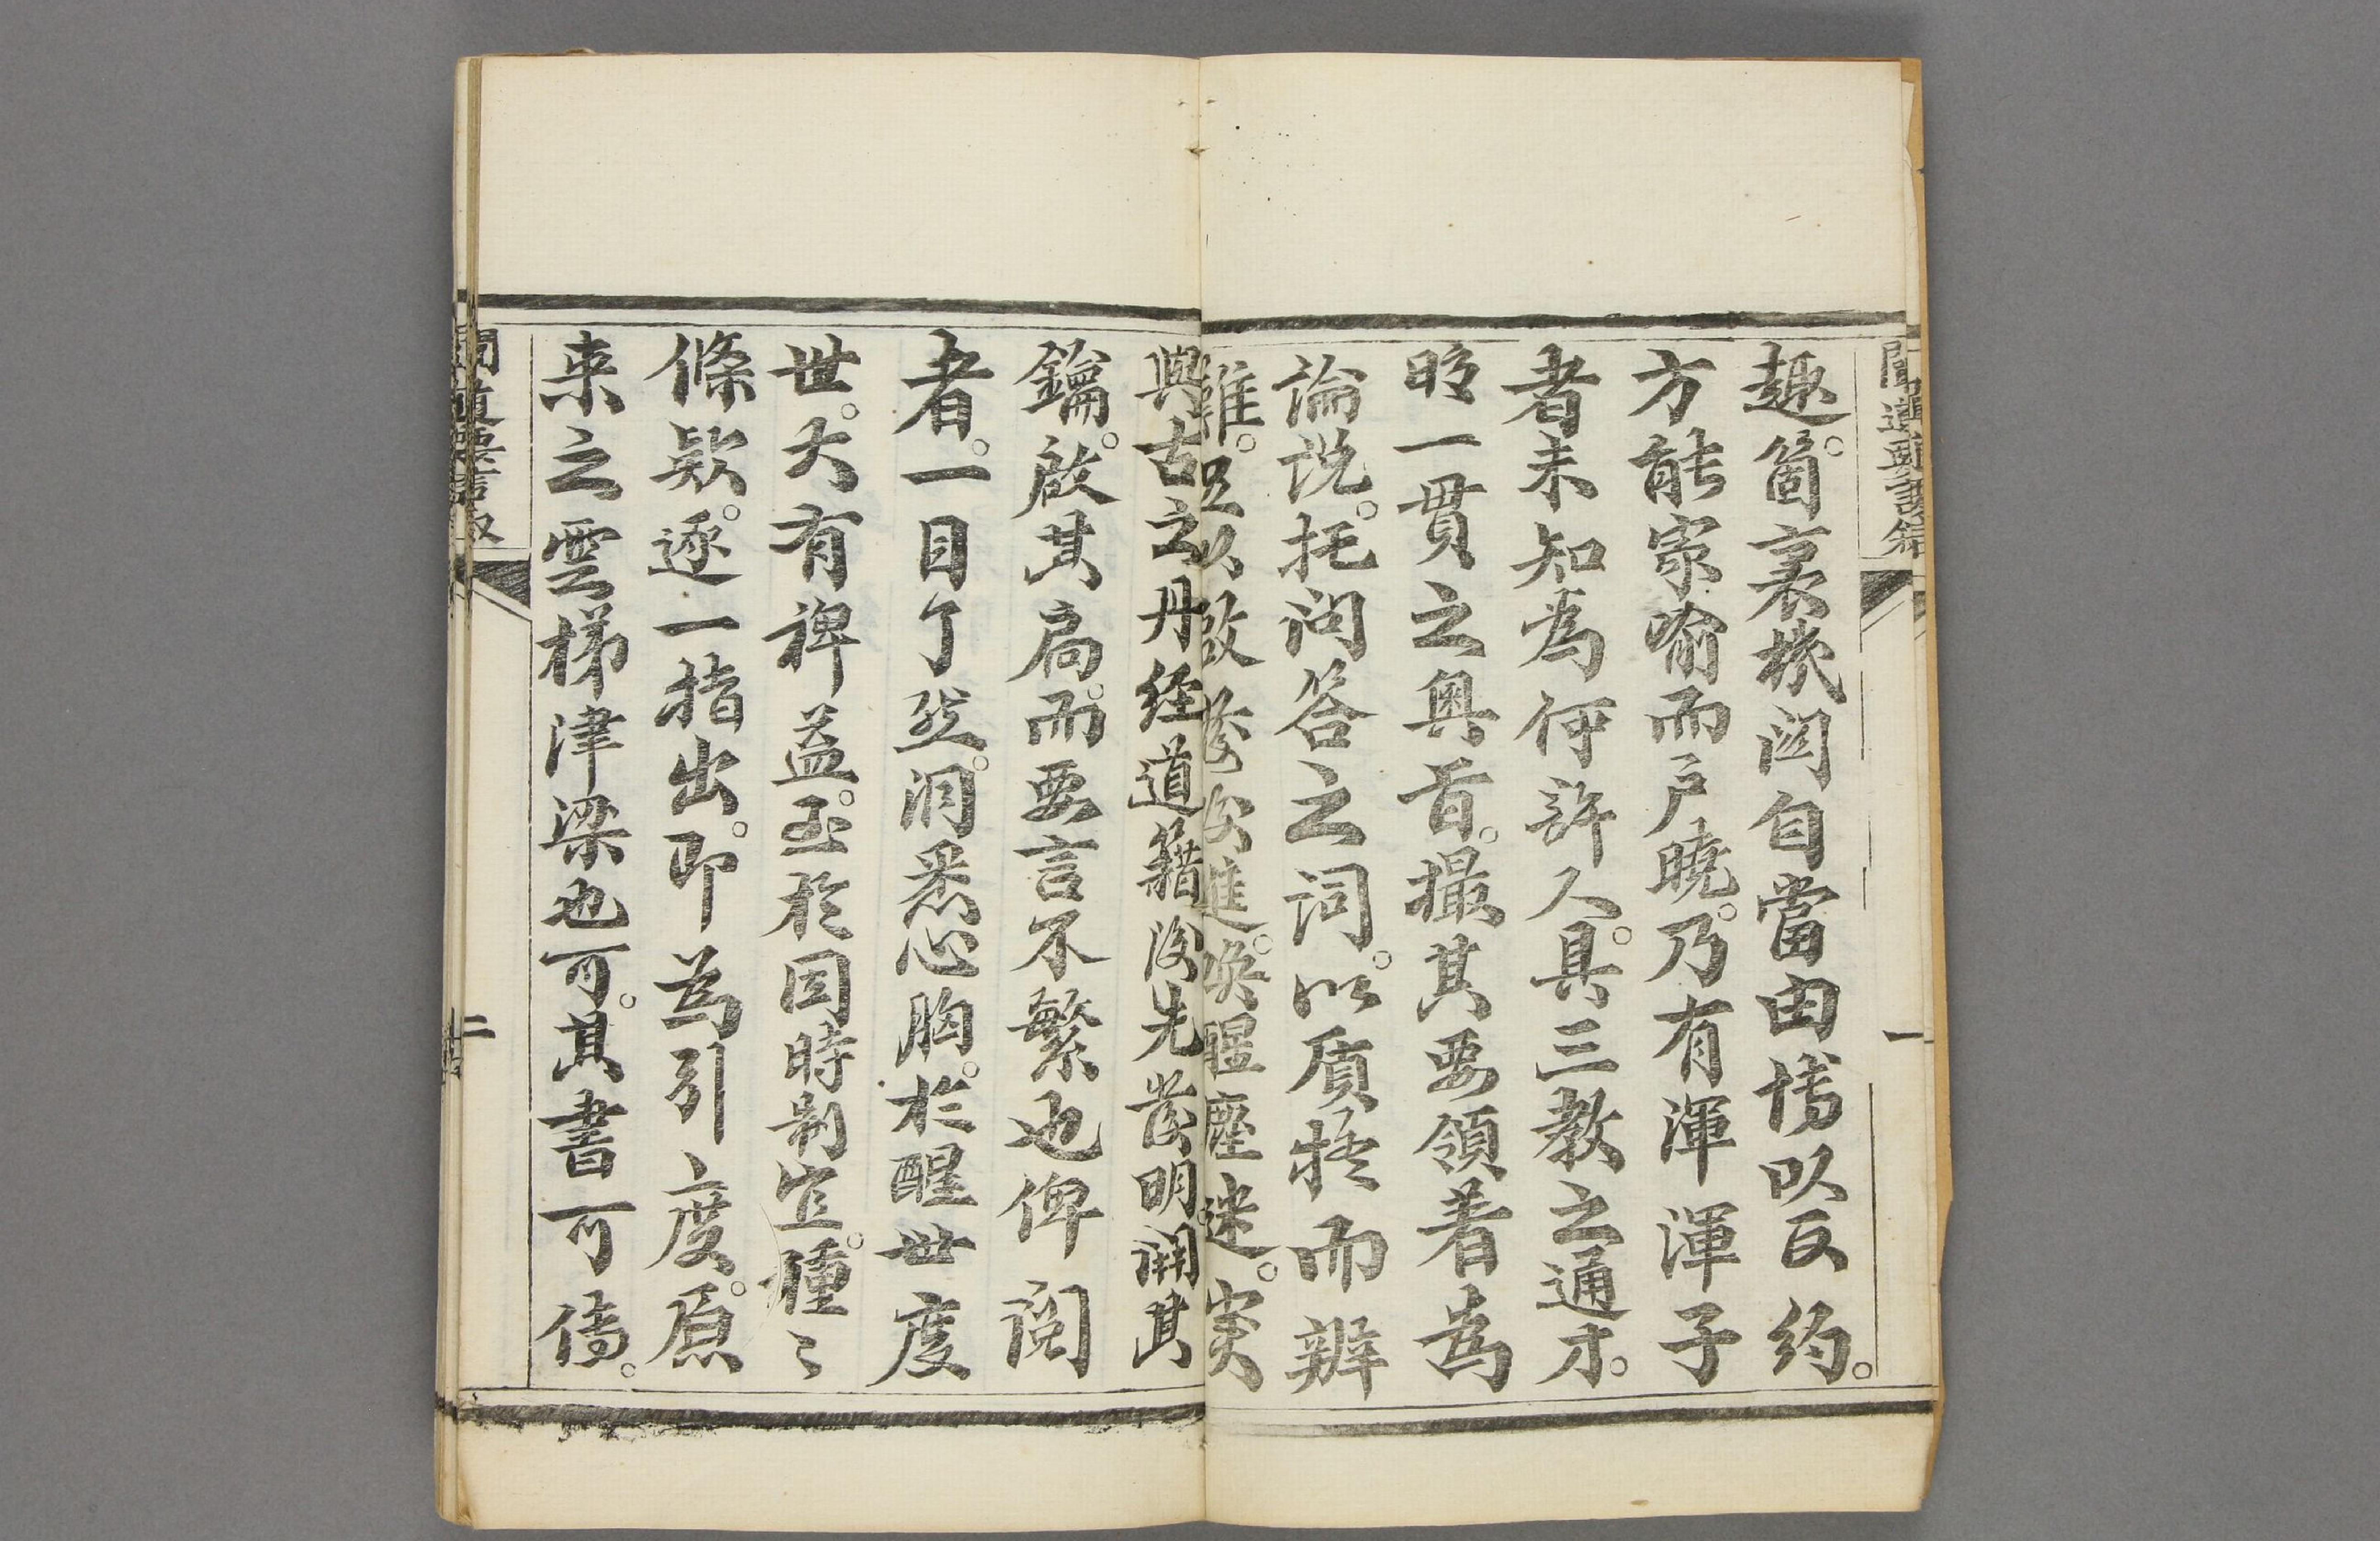 趣。箇裏機関自當由博以反約。
方能家喻而戸曉。乃有渾渾子
者未知為何許人。具三教之通才。
明一貫之奥旨。撮其要領著為
論說。托问答之词。以質疑而辨
難。足以啟後進。喚醒塵迷。实
與古之丹经道籍後先發明開其
鑰。啟其扃。而要言不繁也俾阅
者。一目了然。洞悉心胸。於醒世度
世。大有裨益。至於因時制宜。種〻
條欵。逐一指出。即為引度。原
来之雲梯津梁也可。其書可傳。
二
一